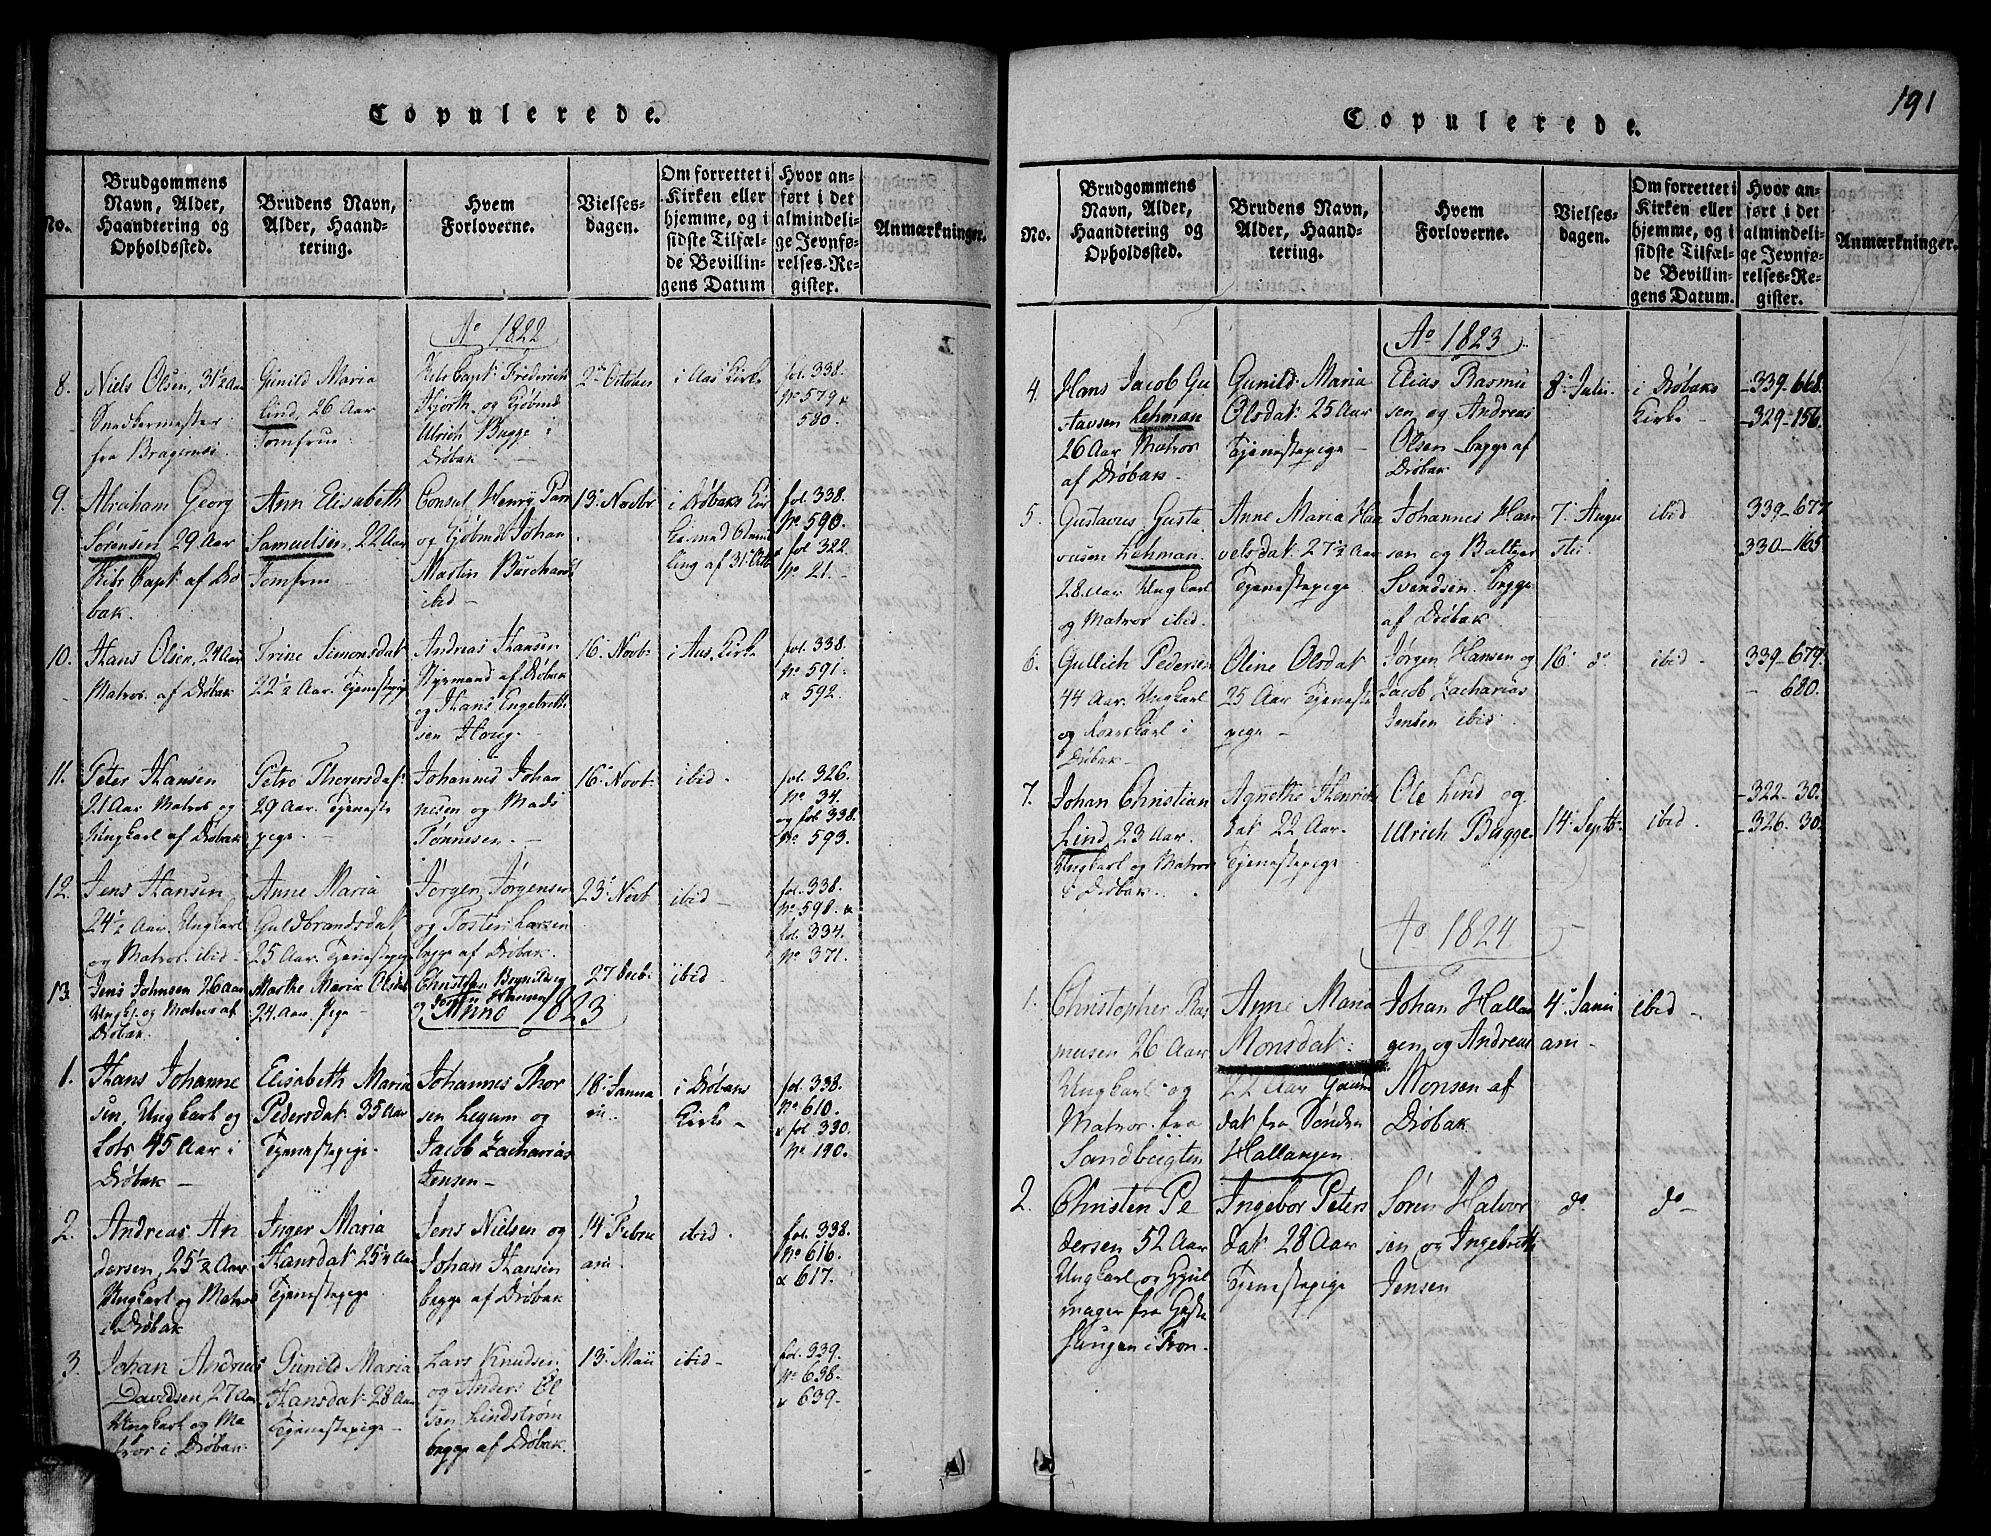 191
Copulerede.
No.
Brudgommens
Navn, Alder,
Haandtering og
Opholdssted.
Brudens Navn,
Alder, Haand-
tering.
Hvem
Forloverne.
Vielses-
dagen.
Om forrettet i
Kirken eller
hjemme, og i
sidste Tilfæl-
de Bevillin-
gens Datum
Hvor an-
ført i det
almindeli-
ge Jevnfø-
relses-Re-
gister.
Anmærkninger.
Ao 1822
8.
Niels Olsen, 31 1/2 Aar
Snedkermester
fra Bragernes
Gunild Maria
Lind, 26 Aar
Jomfrue
Capt: Friderich
Hiorth og
Ulrich Bugge i
Drøbak
2 October
i Aas Kirke
fol. 338.
No 579 &
580.
9.
Abraham Georg
Sørensen 29 Aar
Capt: af Drø
bak.
Ann Elisabeth
Samuelsen, 22 Aar
Jomfrue
Consul Henry Parr
og Johan
Martin
ibid
13 Novbr
i Drøbaks Kir
ke med
ling af 31 Octb
fol. 338.
No 590.
& fol 322.
No 21.
10.
Hans Olsen, 24 Aar
Matros af Drøbak
Trine Simonsdat
22 1/2 Aar. Tjenestepige
Andreas Hansen
Styrmand af Drøbak
og Hans Engebreth
sen Houg
16 Novbr
i Aas Kirke
fol. 338.
No 591.
& 592.
11.
Peter Hansen
21 Aar Matros og
Ungkarl af Drøbak
29 Aar. Tjeneste
pige
Johannes Johan
nesen og Mads
Tønnesen.
16 Novbr
ibid.
fol. 326.
No 34.
og fol 338.
No 593.
12.
Jens Hansen
24 1/2 Aar Ungkarl
og Matros ibid
Anne Maria
Guldbrandsdat
25 Aar. Tjenestepige
Jørgen Jørgensen
og Tosten Larsen
begge af Drøbak
23 Novb
ibid
fol. 338.
No 598. &
fol. 334.
No 371.
13.
Jens Johnsen 26 Aar
Ungk. og Matros af
Drøbak
Marthe Maria Olsdat
24 Aar. Pige
og Hansen
27 Decb.
ibid.
Anno 1823
1.
Hans Johanne
sen, Ungkarl og
Lots 45 Aar i
Drøbak
Elisabeth Maria
Pedersdat 35 Aar
Tjenestepige
Johannes Thor
sen Legum og
Jacob Zacharias
Jensen
18 Janua
rii.
i Drøbaks
Kirke
fol. 338.
No 610.
& fol 330.
No 190.
2.
Andreas An
dersen, 25 1/2 Aar
Ungkarl og Matros
i Drøbak
Inger Maria
Hansdat 25 1/2 Aar
Tjenestepige.
Jens Nielsen og
Johan Hansen
begge af Drøbak
14 Febru
arii
ibid.
fol. 338.
No 616.
& 617.
3.
Johan Andreas
Davidsen, 27 Aar
Ungkarl og Ma
tros i Drøbak
Gunild Maria
Hansdat 28 Aar
Tjenestepige
Lars Knudsen
og Anders Ol
sen Lindstrøm
begge af Drøbak.
13 Maii
ibid
fol. 339.
No 638.
& 639.
Copulerede.
No.
Brudgommens
Navn, Alder,
Haandtering og
Opholdssted.
Brudens Navn,
Alder, Haand-
tering.
Hvem
Forloverne.
Vielses-
dagen.
Om forrettet i
Kirken eller
hjemme, og i
sidste Tilfæl-
de Bevillin-
gens Datum.
Hvor an-
ført i det
almindeli-
ge Jevnfø-
relses-Re-
gister.
Anmærkninger.
Ao 1823
4.
Hans Jacob Gu
stavsen Lehman
26 Aar Matros
af Drøbak.
Gunild Maria
Olsdat 25 Aar
Tjenestepige
Elias Rasmu
sen og Andreas
Olsen begge af
Drøbak
8 Julii
i Drøbaks
Kirke
339-668.
329-156.
5.
Gustavus Gusta
vusen Lehman
28 Aar Ungkarl
og Matros ibid.
Anne Maria Haa
velsdat 27 1/2 Aar
Tjenestepige
Johannes Han
sen og Baltzer
Svendsen begge
af Drøbak
7 Augu
sti.
ibid
339-677
330-165
6.
Gullich Pedersen
44 Aar. Ungkarl
og i
Drøbak
Oline Olsdat
25 Aar Tjeneste
pige
Jørgen Hansen og
Jacob Zacharias
Jensen ibid
16 do
ibid
339-679.
680.
7.
Johan Christian
Lind, 23 Aar.
Ungkarl og Matros
i Drøbak.
Agnethe Henrichs
dat 22 Aar.
Tjenestepige
Ole Lind og
Ulrich Bugge
14 Septb
ibid
322-30.
326-30.
Ao 1824
1.
Christopher Ras
musen 26 Aar
Ungkarl og
Matros fra
Sandbugten
Anne Maria
Monsdat:
22 Aar
dat fra Søndre
Hallangen
Johan Hallan
gen og Andreas
Monsen af
Drøbak
4 Janu
arii
ibid
2.
Christen Pe
dersen 52 Aar
Ungkarl og Hjul
mager fra
i Fron
Ingebor Peters
dat 28 Aar
Tjenestepige
Søren Halvor
sen og Ingebreth
Jensen
do
do